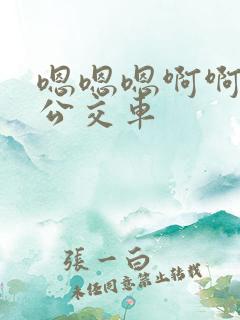 嗯嗯嗯啊啊
公交車
張一白
未任同意禁止转载